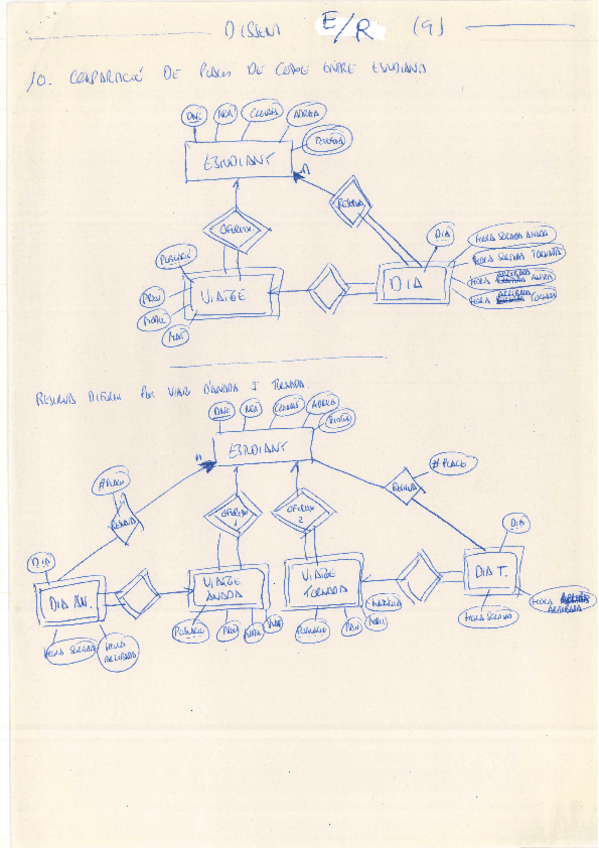 DISSENY E/R (9)
10. COMPARTICIÓ DE PLACES DE COTXE ENTRE ESTUDIANTS
DNI
COGNOMS
ADREÇA
TELÈFON
ESTUDIANT
N
OFEREIX
RESERVA
DIA
HORA SORTIDA ANADA
HORA SORTIDA TORNADA
HORA ARRIBADA ANADA
HORA ARRIBADA TORNADA
DIA
VIATGE
PREU
MODEL
MAT
RESERVES DIFERENTS PER VIATGE D'ANADA I TORNADA.
DNI
COGNOMS
ADREÇA
ESTUDIANT
N
#PLACES
#PLACES
RESERVA
RESERVA
OFEREIX 1
OFEREIX 2
DIA
DIA
DIA AN.
VIATGE ANADA
VIATGE TORNADA
DIA T.
PREU
MODEL
MAT
PREU
MODEL
HORA SORTIDA
HORA ARRIBADA
HORA SORTIDA
HORA ARRIBADA